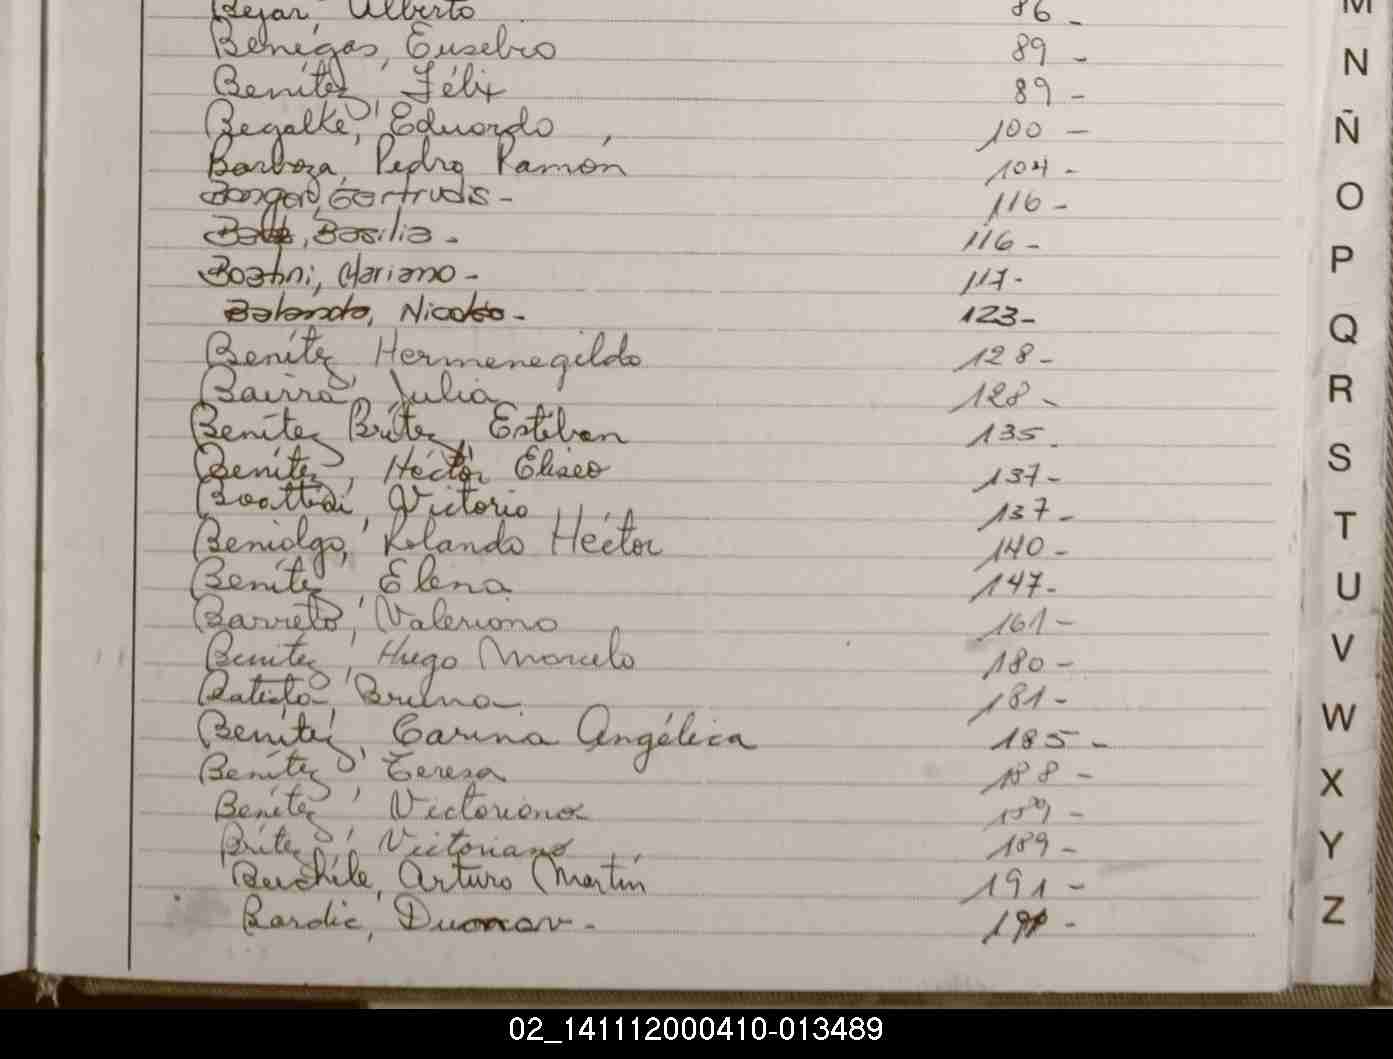 Bejar, Alberto 86 -
Benégas, Eusebio 89 -
Benítez, Félix 89 -
Begalke, Eduardo 100 -
Barboza, Pedro Ramón 104 -
Gertrudis - 116 -
Basilia - 116 -
Mariano - 117 -
Nicolás - 123 -
Benítez Hermenegildo 128 -
Bairra, Julia 128 -
Benítez Brítez, Estéban 135 -
Benítez, Héctor Eliseo 137 -
Victorio 137 -
Beniolgo, Rolando Héctor 140 -
Benítez, Elena 147 -
Barreto, Valeriano 161 -
Benítez, Hugo Marcelo 180 -
Batista, Bruna 181 -
Benítez, Carina Angélica 185 -
Benítez, Teresa 188 -
Benítez, Victoriano 189 -
Brítez, Victoriano 189 -
Arturo Martín 191 -
Bardic, -
M
N
Ñ
O
P
Q
R
S
T
U
V
W
X
Y
Z
02_141112000410-013489